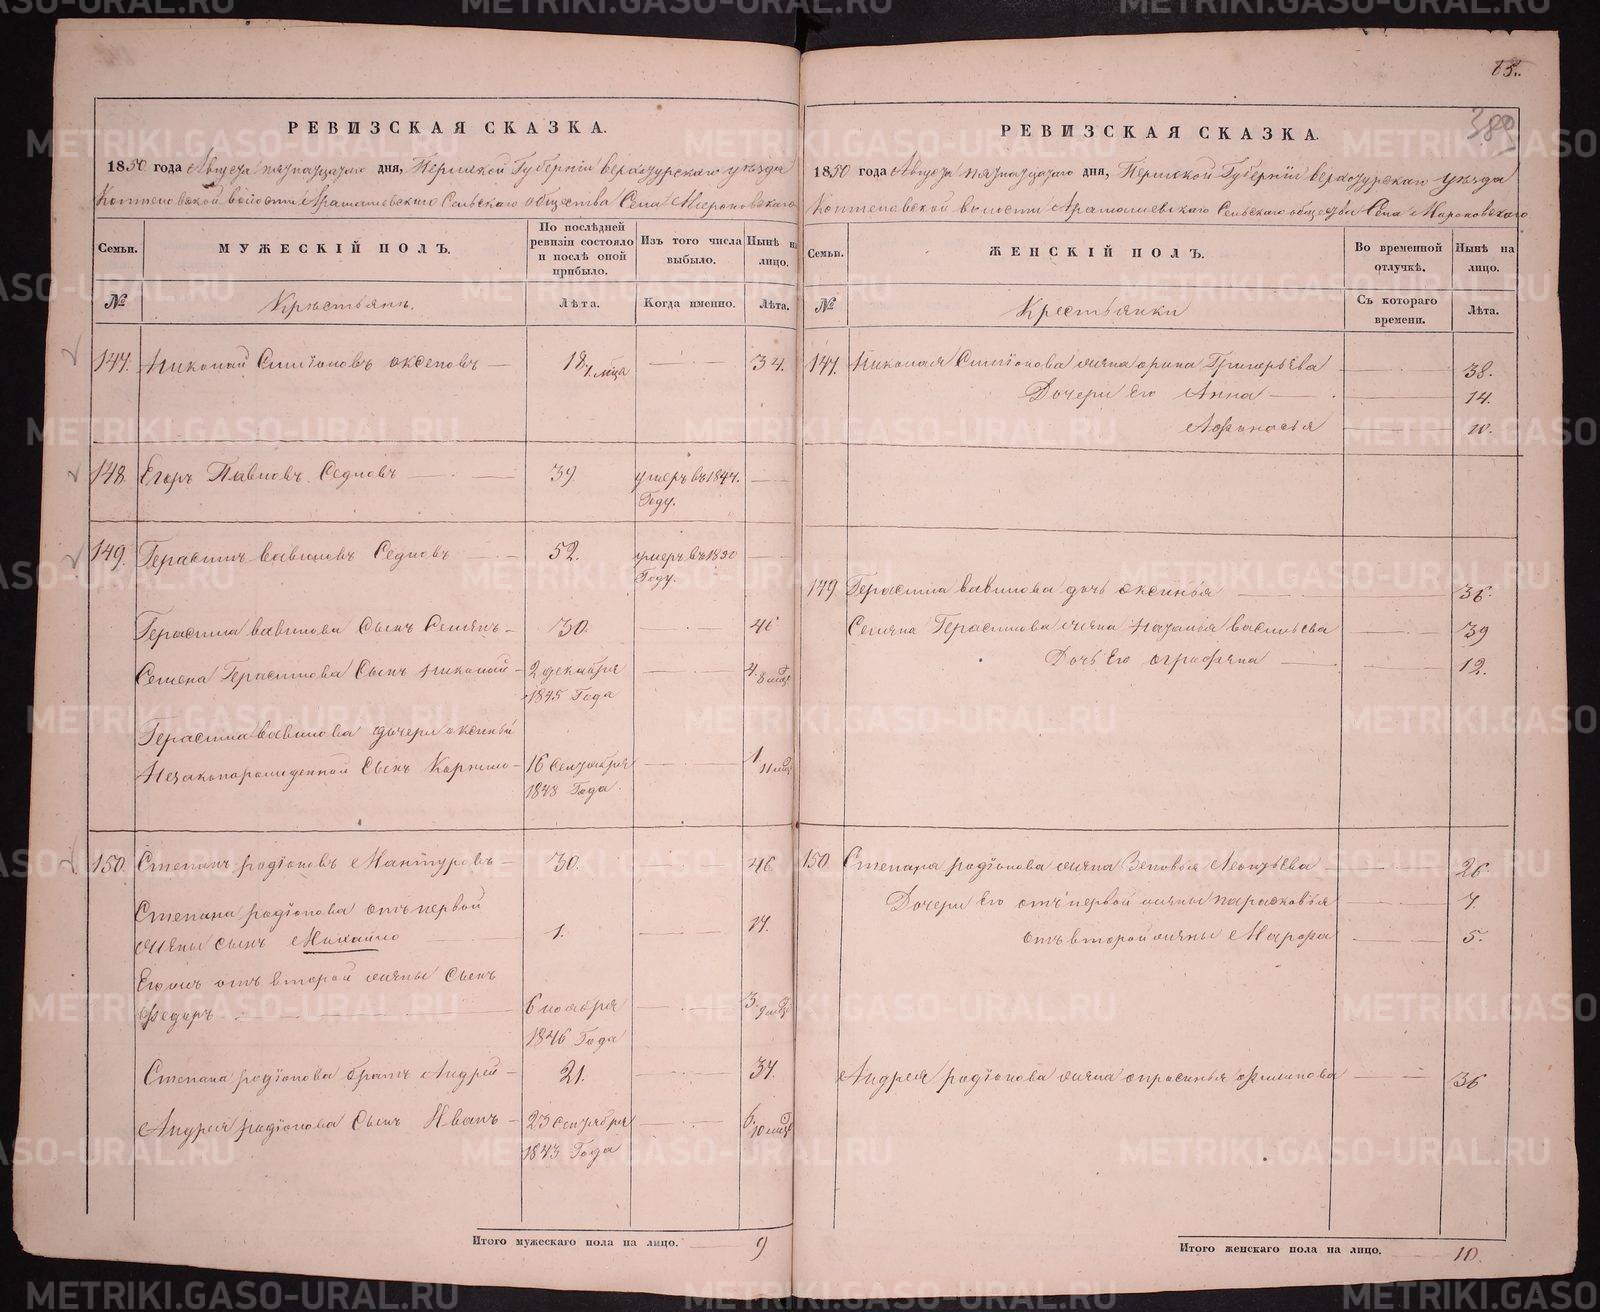 РЕВИЗСКАЯ СКАЗКА.
1850 года Августа пятнатцатаго дня, Пермской Губернiи верхотурскаго уѣзда
Коптеловской волости Арамашевскаго Сельскаго общества Села Мироновскаго
Семьи.
МУЖЕСКIЙ ПОЛЪ.
По послѣдней ревизiи состояло и послѣ оной прибыло.
Изъ того числа выбыло.
Нынѣ на лицо.
№
Крѣстьянъ.
Лѣта.
Когда именно.
Лѣта.
147. Николай Симiоновъ оксеновъ 18. 34.
148. Егоръ Павловъ Седновъ 39. умеръ въ 1847.
Году.
149. Герасимъ вавиловъ Седновъ 52. умеръ въ 1850
Году.
Герасима вавилова Сынъ Семянъ 30. 46
Семена Герасимова Сынъ николай 2 декабря 4. 8 мцо
1845 Года
Герасима вавилова дочери оксиньи
Незаконорожденной Сынъ Корнило 16 Сентября 1. 11 мцо
1848 Года.
150. Степанъ родiоновъ Мантуровъ 30. 46.
Степана родiонова отъ первой
жены сынъ Михайло 1. 17.
Егожъ отъ второй жены Сынъ
Федоръ 6 ноября 3. 9 мцо
1846 Года
Степана родiонова братъ Андрей 21. 37.
Андрея родiонова Сынъ Иванъ 23 Сентября 6. 10 мцо
1843 Года
Итого мужескаго пола на лицо. 9
389
РЕВИЗСКАЯ СКАЗКА.
1850 года Августа пятнатцатаго дня, Пермской Губернiи верхотурскаго уѣзда
Коптеловской волости Арамашевскаго Сельскаго общества Села Мироновскаго
Семьи.
ЖЕНСКIЙ ПОЛЪ.
Во временной отлучкѣ.
Нынѣ на лицо.
№
Крестьянки
Съ котораго времени.
Лѣта.
147. Николая Симiонова жена орина Григорьева 38.
Дочери Его Анна 14.
Афонасья 10.
149. Герасима вавилова дочь оксинья 36.
Семяна Герасимова жена Наталья васильева 39
Дочь Его ографена 12.
150. Степана родiонова жена Зеновья Леонтьева 26.
Дочери Его отъ первой жены парасковья 7.
отъ второй жены Марфа 5.
Андрея родiонова жена опросинья филипова 36
Итого женскаго пола на лицо. 10.
METRIKI.GASO-URAL.RU